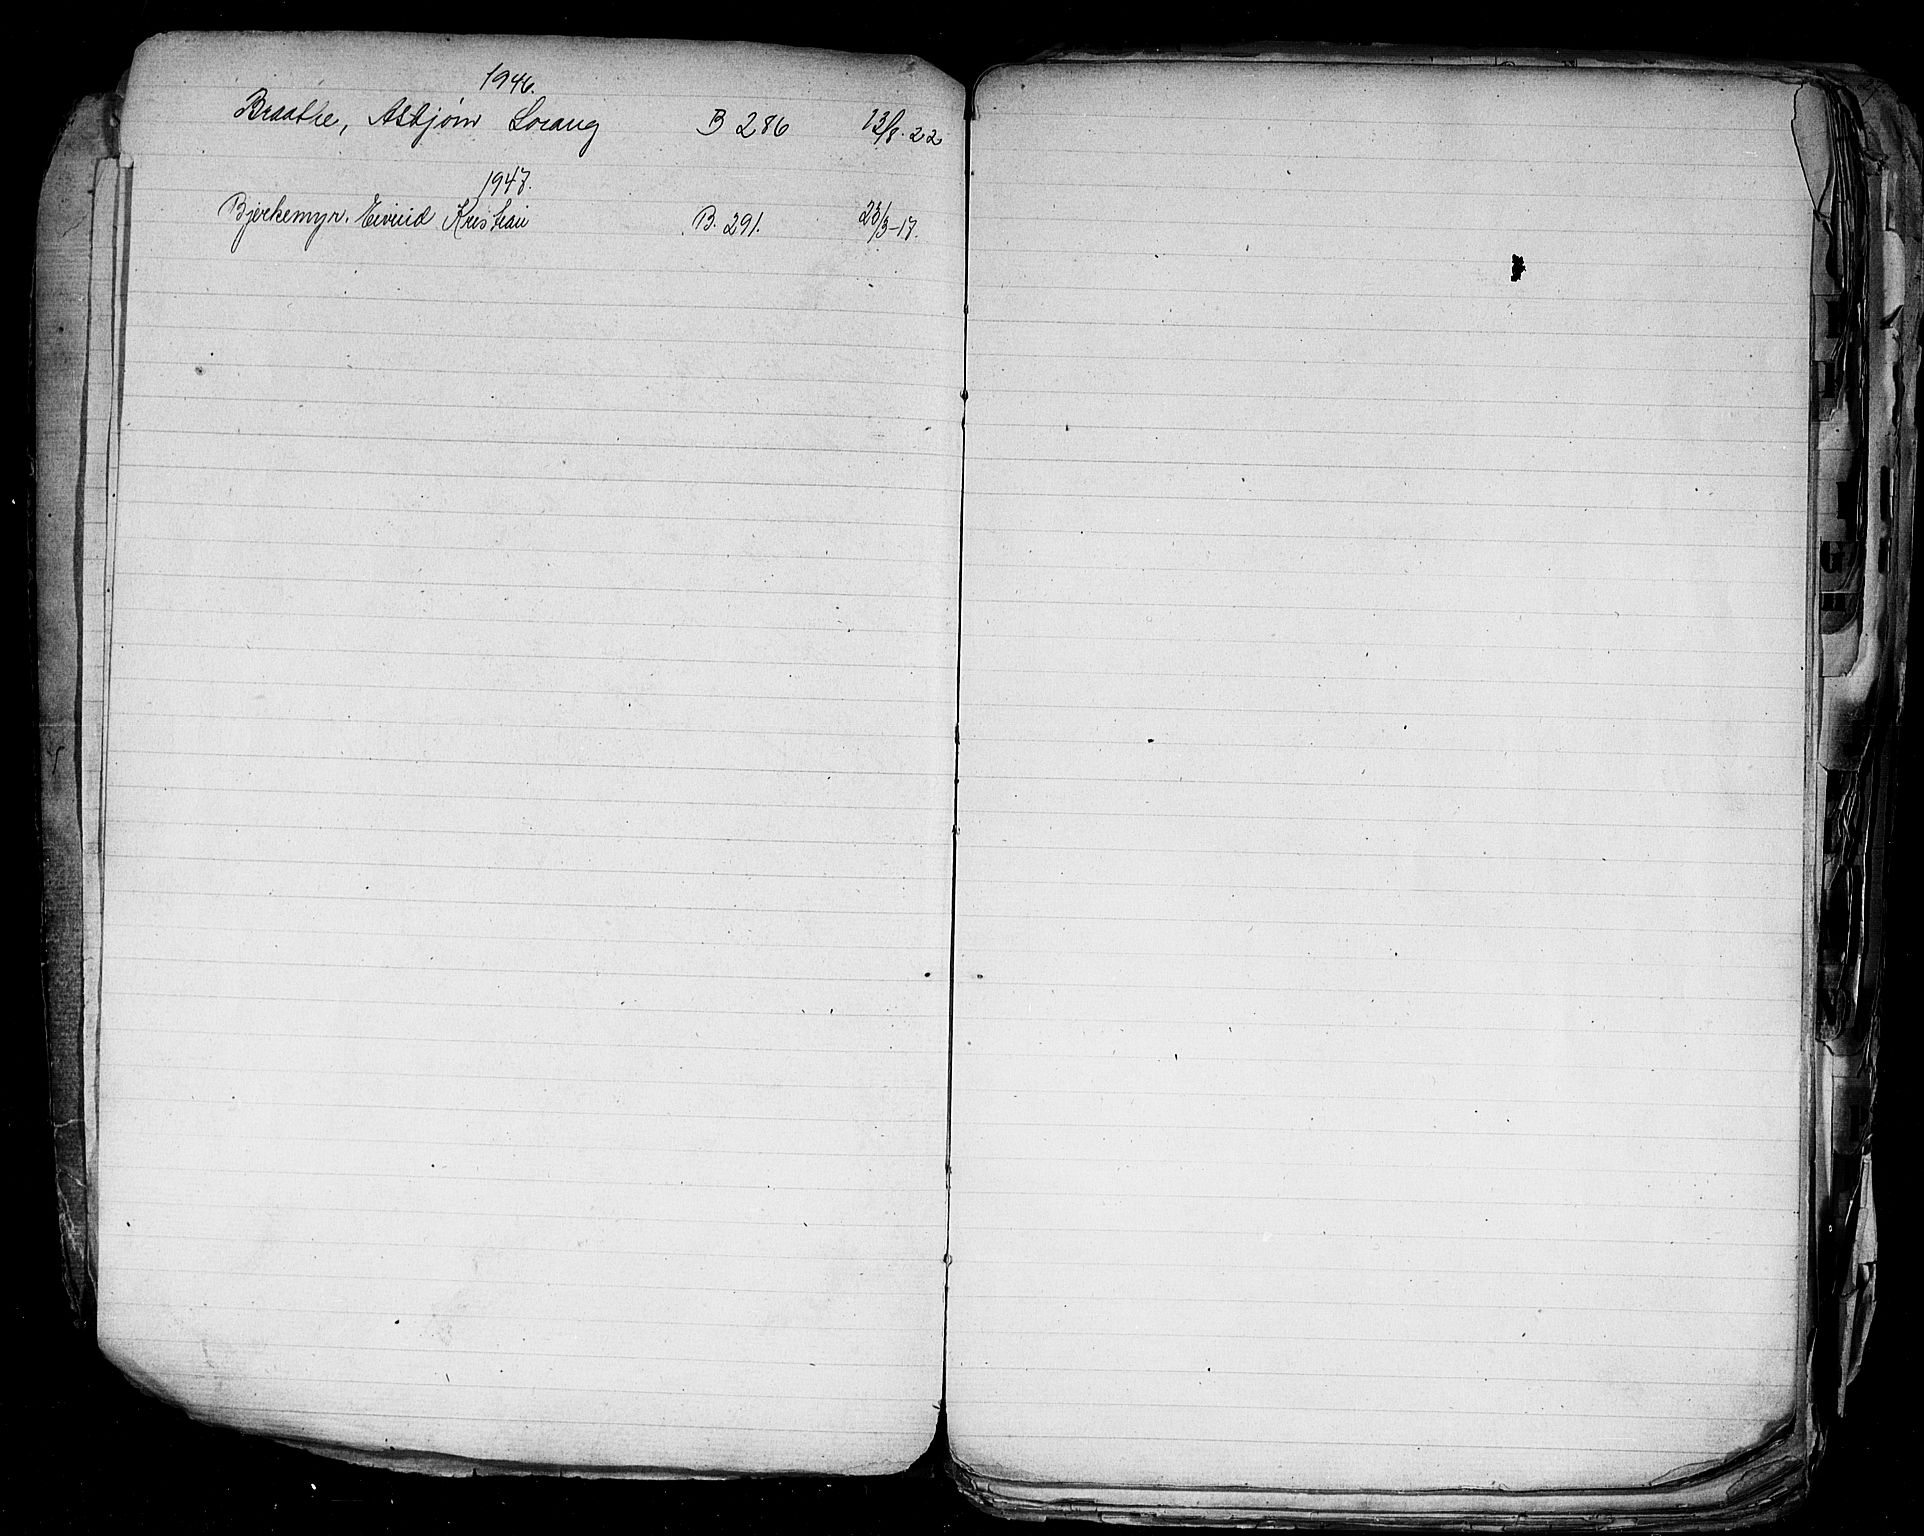 1946.
Braathe, Asbjørn Lorang B 286 13/8. 22
1947.
Bjerkemyr. Eivind Kristian B. 291. 23/3-17.